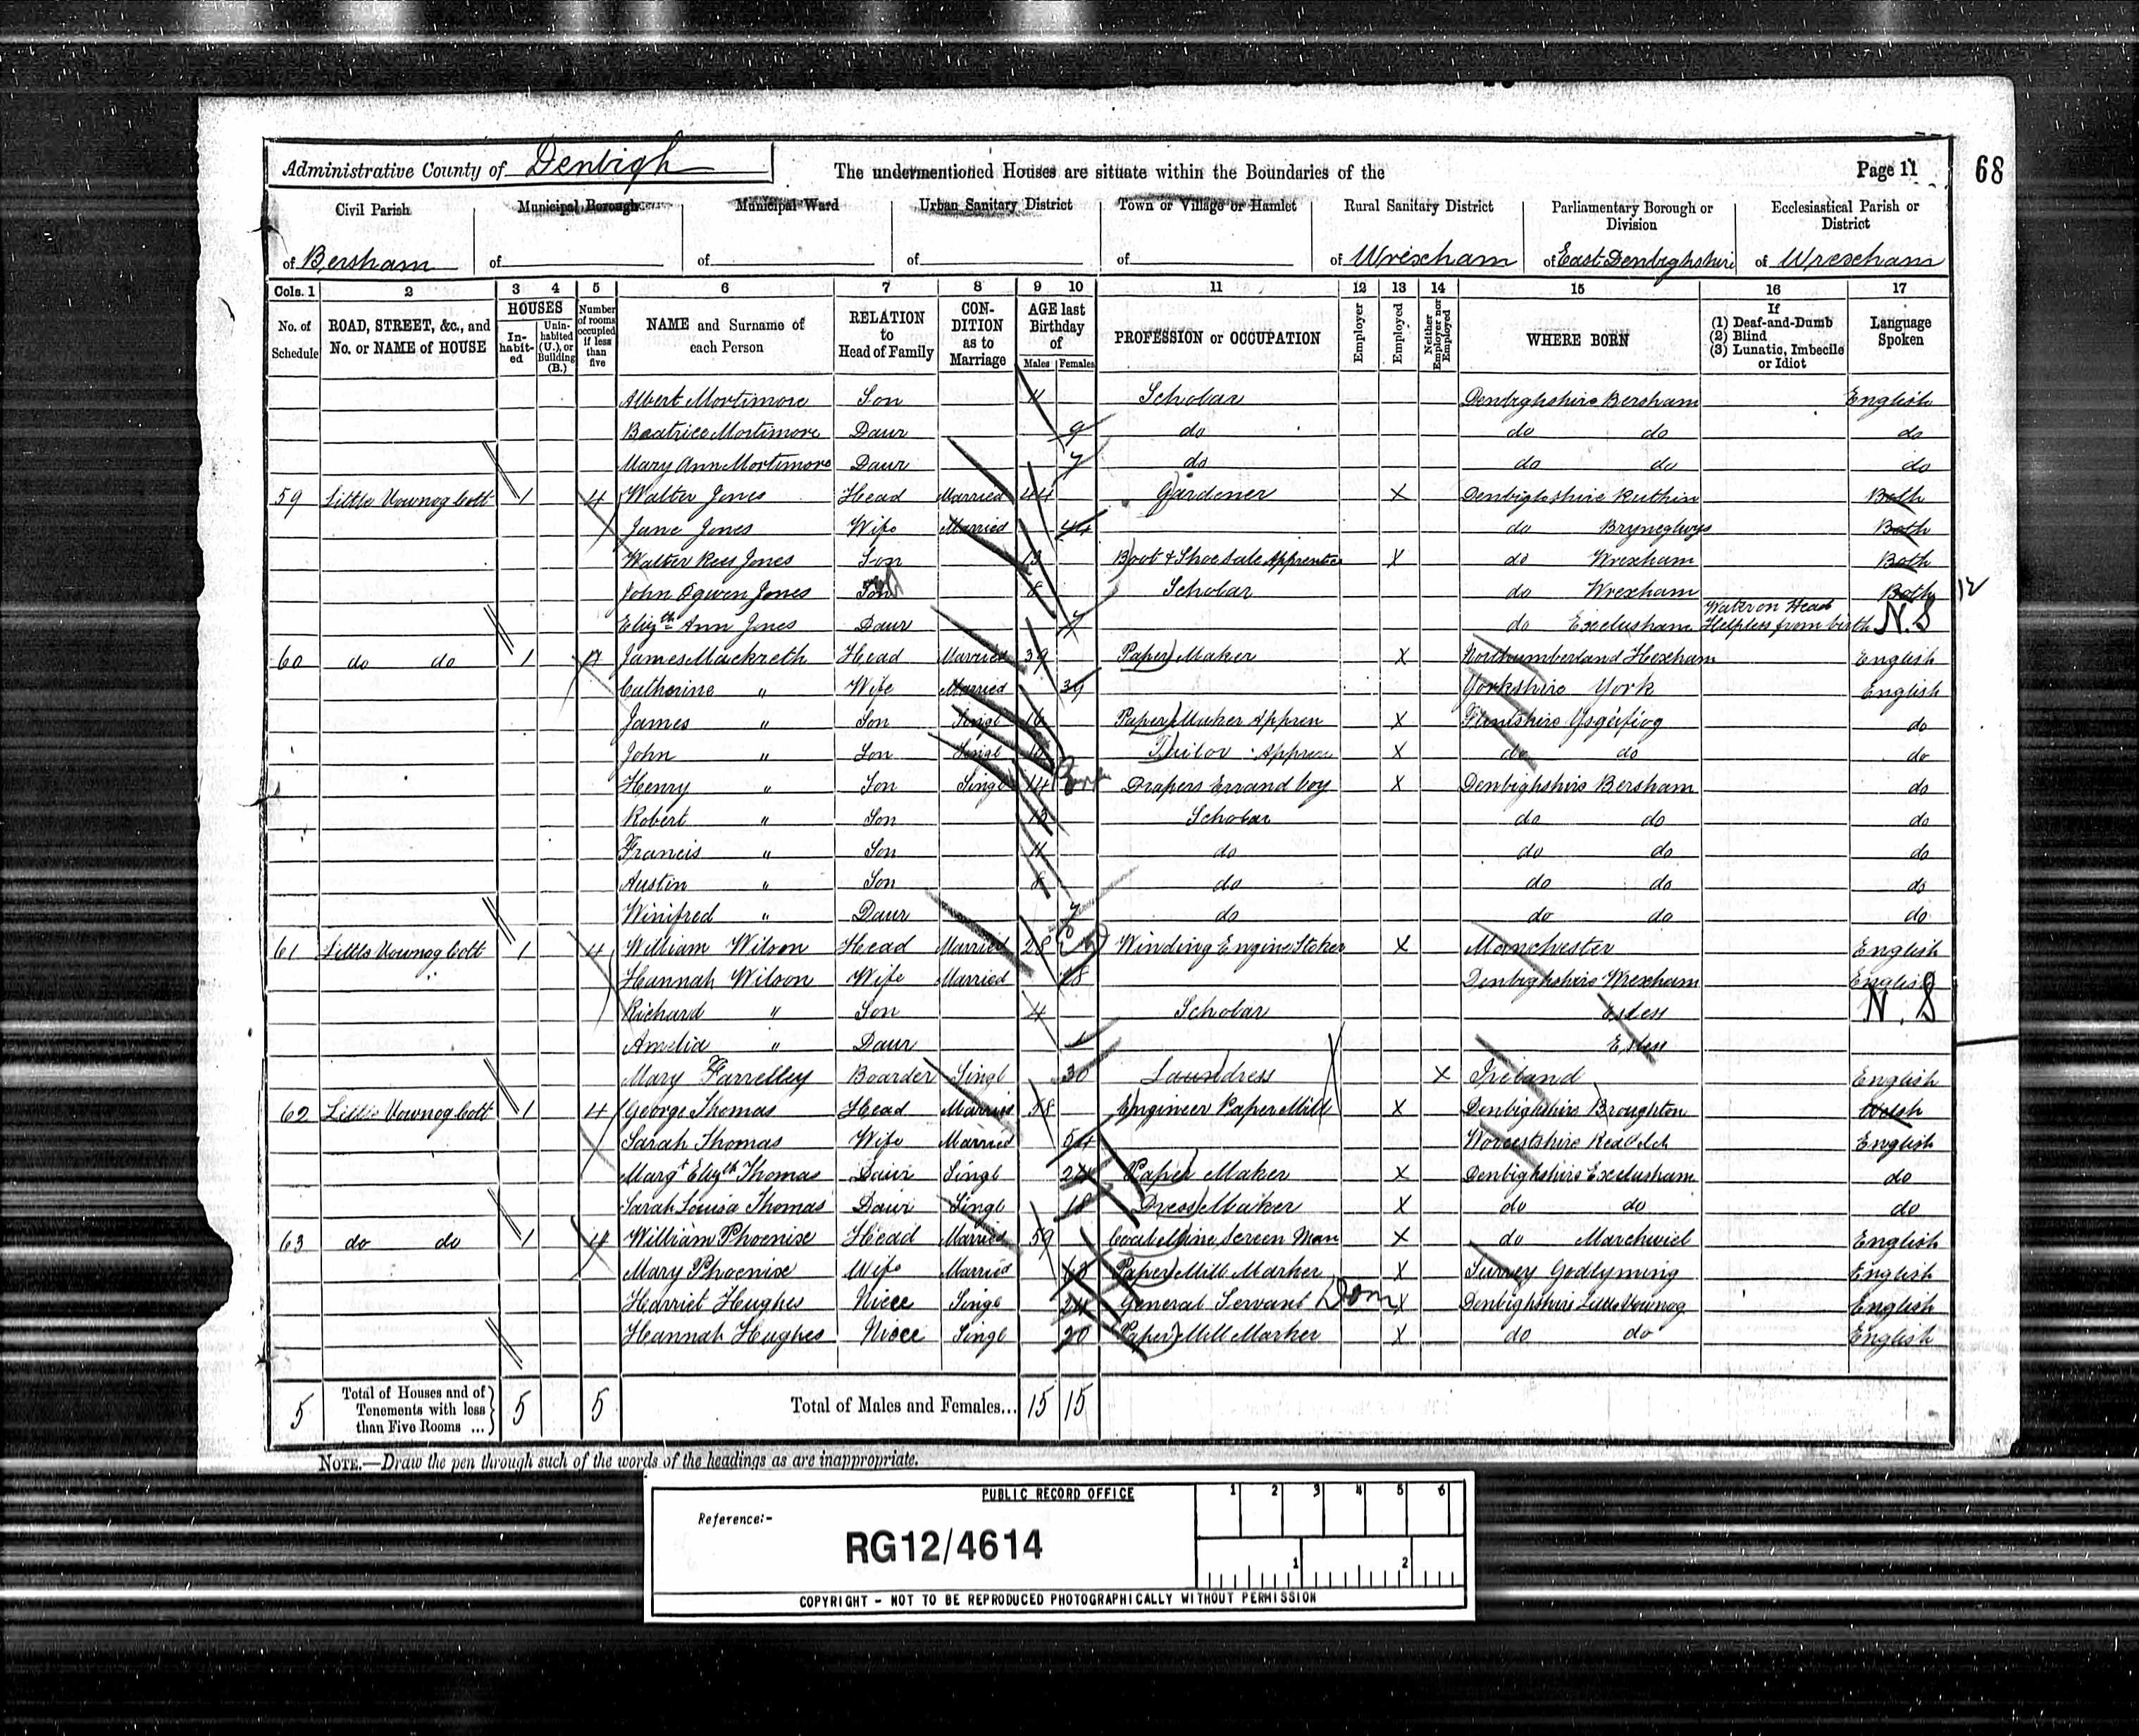 Administrative County of Denbigh The undermentioned Houses are situate within the Boundaries of the Page 11 68
Civil Parish Municipal Borough Municipal Ward Urban Sanitary District Town or Village or Hamlet Rural Sanitary District Parliamentary Borough or Division Ecclesiastical Parish or District
of Bersham of of of of of Wrexham of East Denbighshire of Wrexham
Cols. 1 2 3 4 5 6 7 8 9 10 11 12 13 14 15 16 17
No. of Schedule ROAD, STREET, &c., and No. or NAME of HOUSE HOUSES Inhabited Uninhabited (U.), or Building (B.) Number of rooms occupied if less than five NAME and Surname of each Person RELATION to Head of Family CONDITION as to Marriage AGE last Birthday of Males Females PROFESSION or OCCUPATION Employer Employed Neither Employer nor Employed WHERE BORN If (1) Deaf-and-Dumb (2) Blind (3) Lunatic, Imbecile or Idiot Language Spoken
Albert Mortimore Son 11 Scholar Denbighshire Bersham English
Beatrice Mortimore Daur 9 do do do do
Mary Ann Mortimore Daur 7 do do do do
59 Little Vownog Cott 1 4 Walter Jones Head Married 44 Gardener X Denbighshire Ruthin Both
Jane Jones Wife Married 44 do Bryneglwys Both
Walter Rees Jones Son 13 Boot & Shoe Sale Apprentice X do Wrexham Both
John Ogwen Jones Son 8 Scholar do Wrexham Both 12
Elizth Ann Jones Daur 7 do Esclusham Water on Head Helpless from birth N.S
60 do do 1 James Mackreth Head Married 39 Paper Maker X Northumberland Hexham English
Catherine " Wife Married 39 Yorkshire York English
James " Son Singl 16 Paper Maker Appren X Flintshire Ysgeifiog do
John " Son Singl Tailor Appren X do do do
Henry " Son Singl 14 Drapers Errand boy X Denbighshire Bersham do
Robert " Son 13 Scholar do do do
Francis " Son 11 do do do do
Austin " Son 8 do do do do
Winifred " Daur 7 do do do do
61 Little Vownog Cott 1 4 William Wilson Head Married 28 Winding Engine Stoker X Manchester English
Hannah Wilson Wife Married 28 Denbighshire Wrexham English
Richard " Son 4 Scholar Essex N.S
Amelia " Daur 1 Essex
Mary Farrelley Boarder Singl 30 Laundress X Ireland English
62 Little Vownog Cott 1 4 George Thomas Head Married 58 Engineer Paper Mill X Denbighshire Broughton Welsh
Sarah Thomas Wife Married 54 Worcestshire Redditch English
Margt Elizth Thomas Daur Singl 24 Paper Maker X Denbighshire Esclusham do
Sarah Louisa Thomas Daur Singl 18 Dress Maker X do do do
63 do do 1 4 William Phoenix Head Married 59 Coal Mine Screen Man X do Marchwiel English
Mary Phoenix Wife Married Paper Mill Marker X Surrey Godlyming English
Harriet Hughes Niece Singl 24 General Servant Dom X Denbighshire Little Vownog English
Hannah Hughes Niece Singl 20 Paper Mill Marker X do do English
5 Total of Houses and of Tenements with less than Five Rooms ... 5 5 Total of Males and Females... 15 15
NOTE.—Draw the pen through such of the words of the headings as are inappropriate.
PUBLIC RECORD OFFICE 1 2 3 4 5 6
Reference:-
RG12/4614
1 2
COPYRIGHT - NOT TO BE REPRODUCED PHOTOGRAPHICALLY WITHOUT PERMISSION